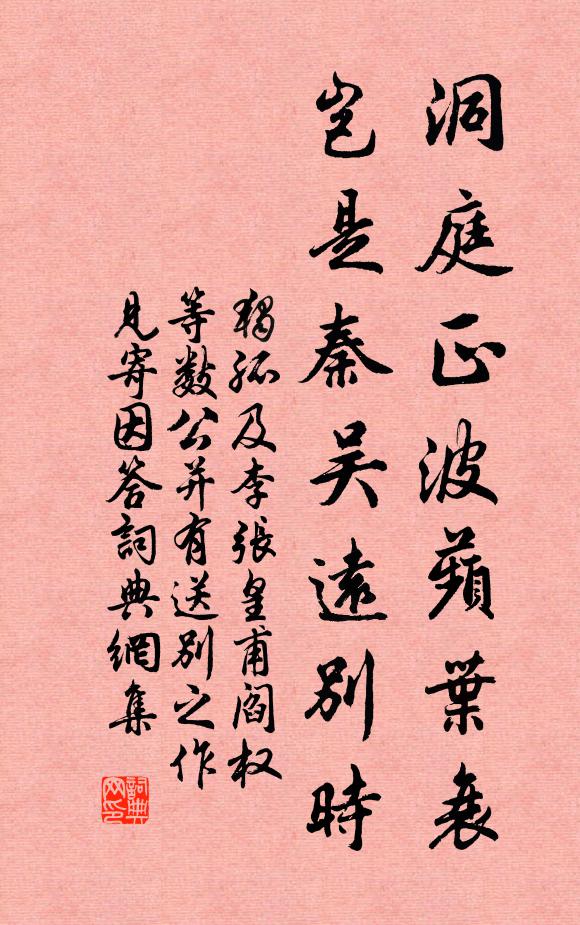 洞庭正波蘋葉衰
豈是秦吳遠別時
獨孤及李張皇甫閻权
等數公并有送別之作
見寄因答詞典網集
詞典
网印